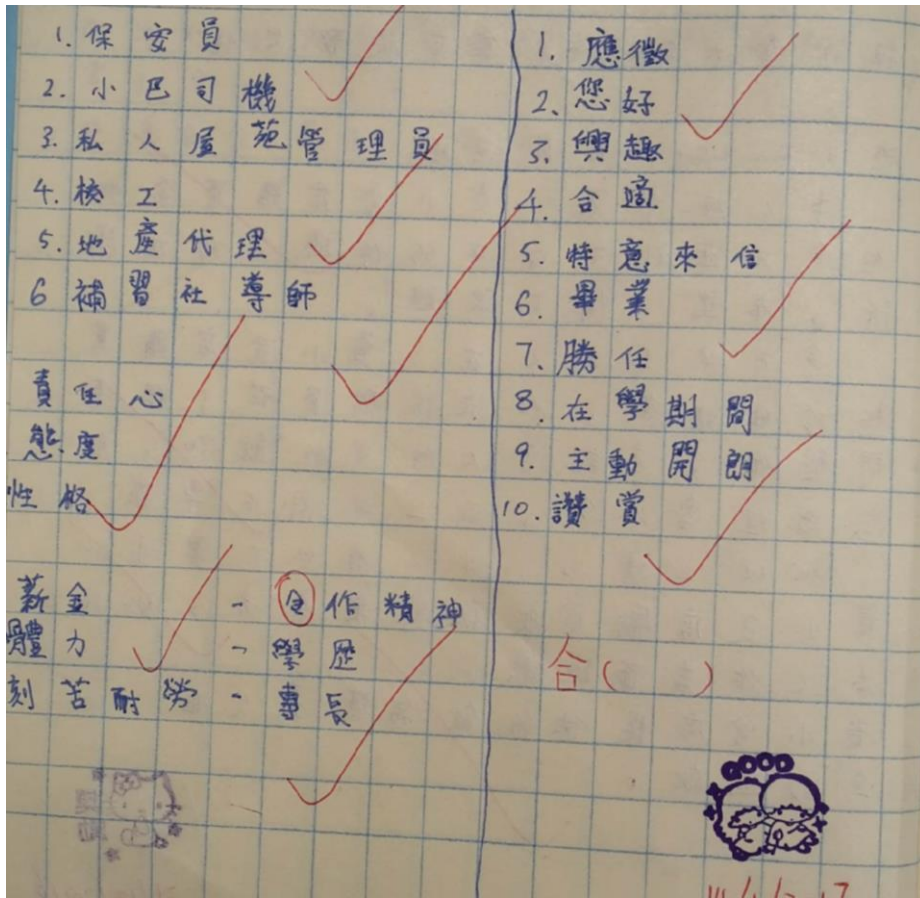 1. 保安員
2. 小巴司機
3. 私人屋苑管理員
4. 校工
5. 地產代理
6 補習社導師
責任心
態度
性格
薪金 - 合作精神
體力 - 學歷
刻苦耐勞 - 專長
1. 應徵
2. 您好
3. 興趣
4. 合適
5. 特意來信
6. 畢業
7. 勝任
8. 在學期間
9. 主動開朗
10. 讚賞
合( )
GOOD